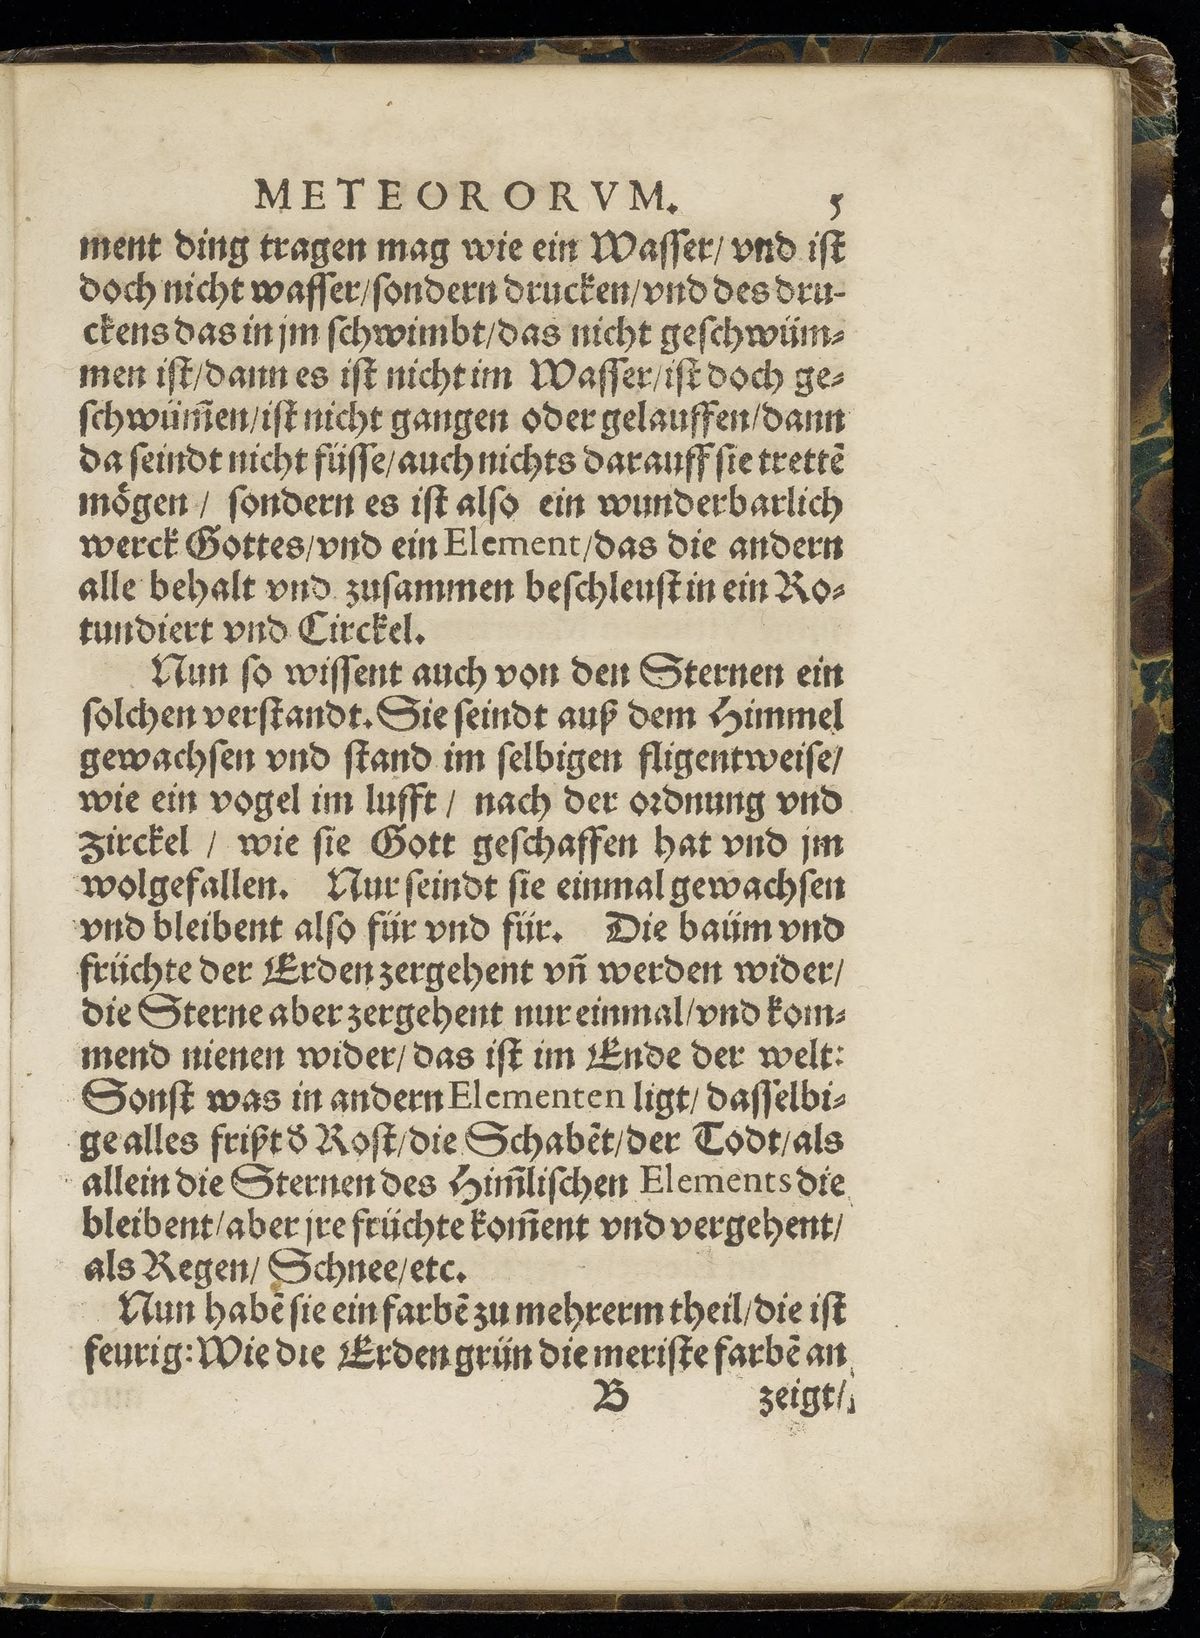 METEORORVM. 5
ment ding tragen mag wie ein Wasser/ vnd ist
doch nicht wasser/sondern drucken/vnd des dru-
ckens das in jm schwimbt/das nicht geschwüm-
men ist/dann es ist nicht im Wasser/ist doch ge-
schwüm̃en/ist nicht gangen oder gelauffen/dann
da seindt nicht füsse/auch nichts darauff sie trettē
mögen / sondern es ist also ein wunderbarlich
werck Gottes/vnd ein Element/das die andern
alle behalt vnd zusammen beschleust in ein Ro-
tundiert vnd Circkel.
Nun so wissent auch von den Sternen ein
solchen verstandt. Sie seindt auß dem Himmel
gewachsen vnd stand im selbigen fligentweise/
wie ein vogel im lufft / nach der ordnung vnd
Zirckel / wie sie Gott geschaffen hat vnd jm
wolgefallen. Nur seindt sie einmal gewachsen
vnd bleibent also für vnd für. Die baüm vnd
früchte der Erden zergehent vñ werden wider/
die Sterne aber zergehent nur einmal/vnd kom-
mend nienen wider/das ist im Ende der welt:
Sonst was in andern Elementen ligt/dasselbi-
ge alles frißt d̃ Rost/die Schabēt/der Todt/als
allein die Sternen des Him̃lischen Elements die
bleibent/aber jre früchte kom̃ent vnd vergehent/
als Regen/ Schnee/etc.
Nun habē sie ein farbē zu mehrerm theil/die ist
feurig: Wie die Erden grün die meriste farbē an
B zeigt/